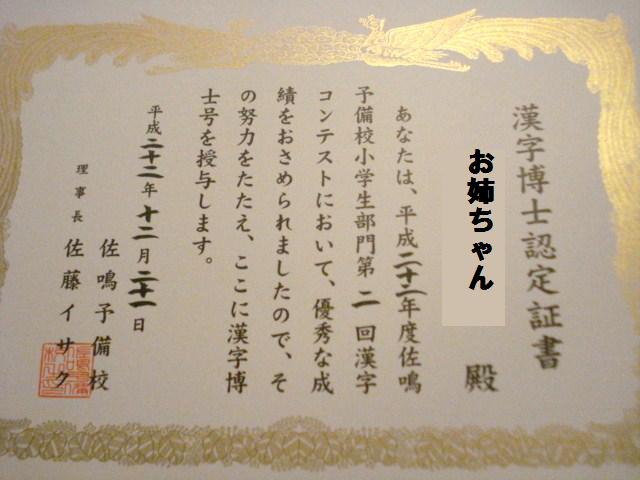 漢字博士認定証書
お姉ちゃん
殿
あなたは、平成二十二年度佐鳴
予備校小学生部門第二回漢字
コンテストにおいて、優秀な成
績をおさめられましたので、そ
の努力をたたえ、ここに漢字博
士号を授与します。
平成二十二年十二月二十一日
佐鳴予備校
理事長 佐藤イサク